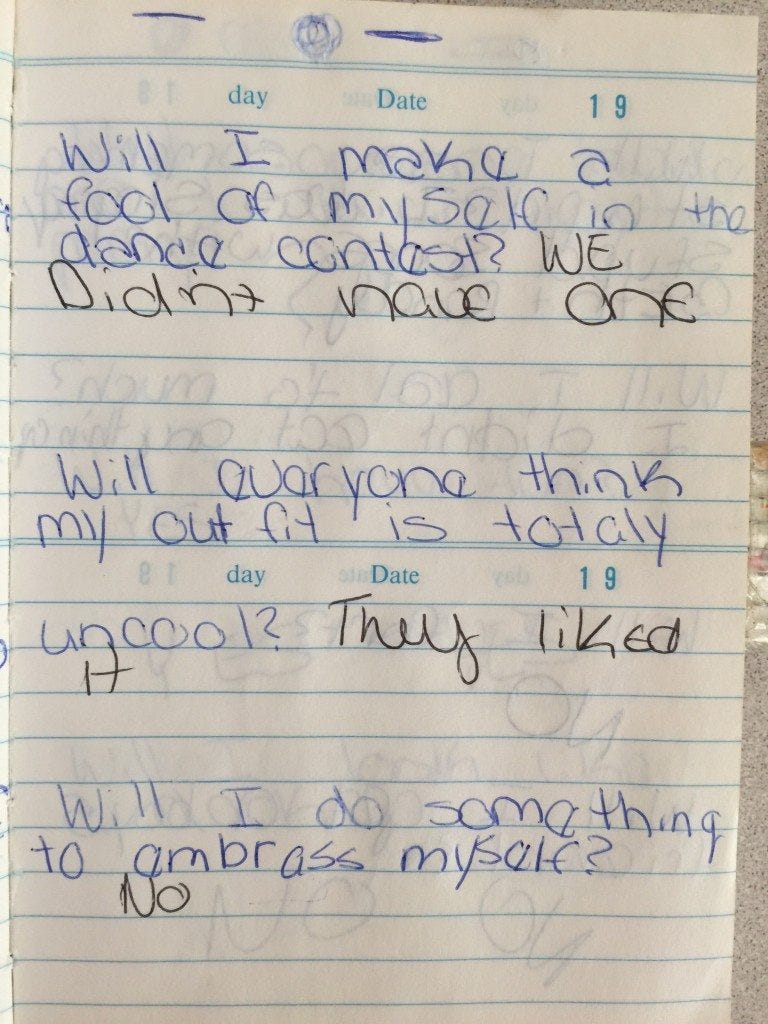 day Date 19
Will I make a
fool of myself in the
dance contest? WE
Didn't have one
Will everyone think
my outfit is totaly
day Date 19
uncool? They liked
It
Will I do something
to embrass myself?
No